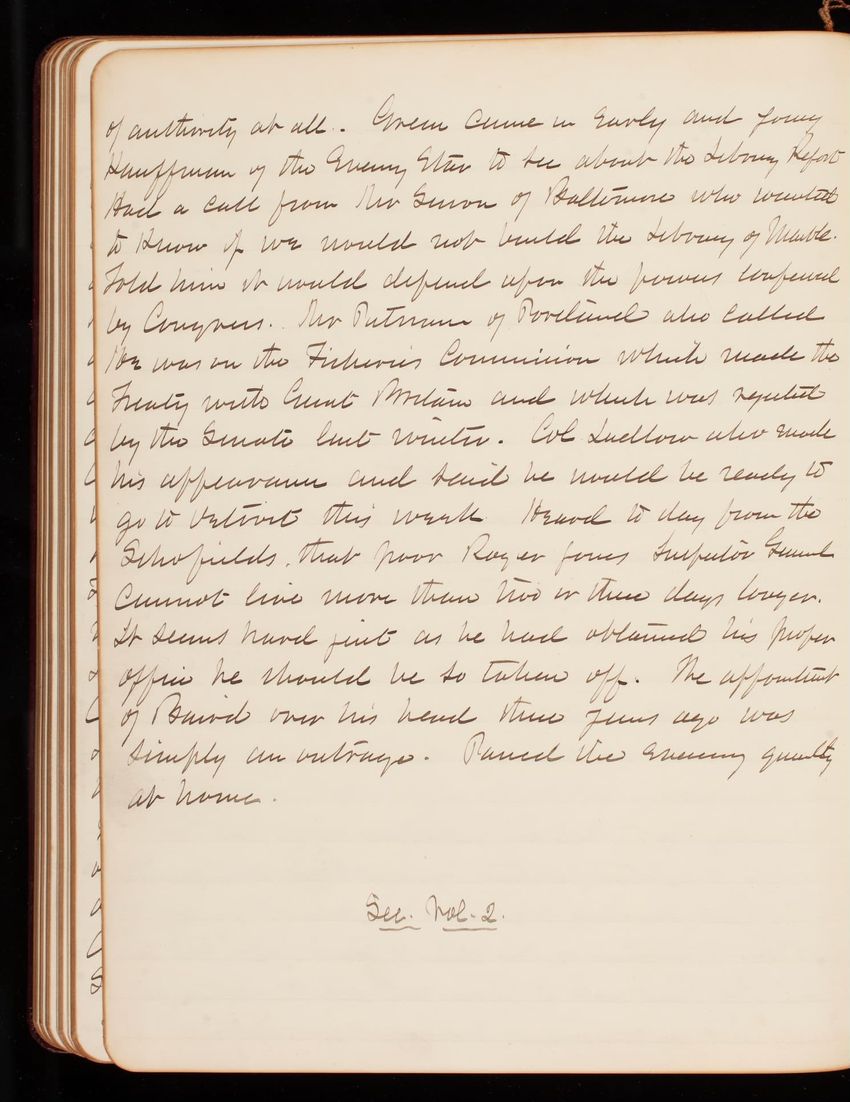 of authority at all. Green came in early and young
Kauffman of the Evening Star to see about the Library Report
Had a call from Mr Simon of Baltimore who wanted
to know if we would not build the Library of Marble.
Told him it would depend upon the powers conferred
by Congress. Mr Putnam of Portland also called
He was on the Fisheries Commission which made the
Treaty with Great Britain and which was rejected
by the Senate last winter. Col Ludlow also made
his appearance and said he would be ready to
go to Detroit this week Heard to day from the
Schofields, that poor Roger Jones Inspector General
cannot live more than two or three days longer.
It seems hard just as he had obtained his proper
office he should be so taken off. The appointment
of Baird over his head three years ago was
simply an outrage. Passed the evening quietly
at home.
See. Vol. 2.